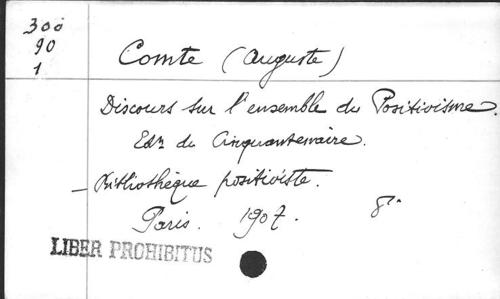 300
90
1
Comte (Auguste)
Discours sur l'ensemble du Positivisme.
Edn du Cinquantenaire.
– Bibliothèque positiviste.
Paris. 1907. 8°
LIBER PROHIBITUS